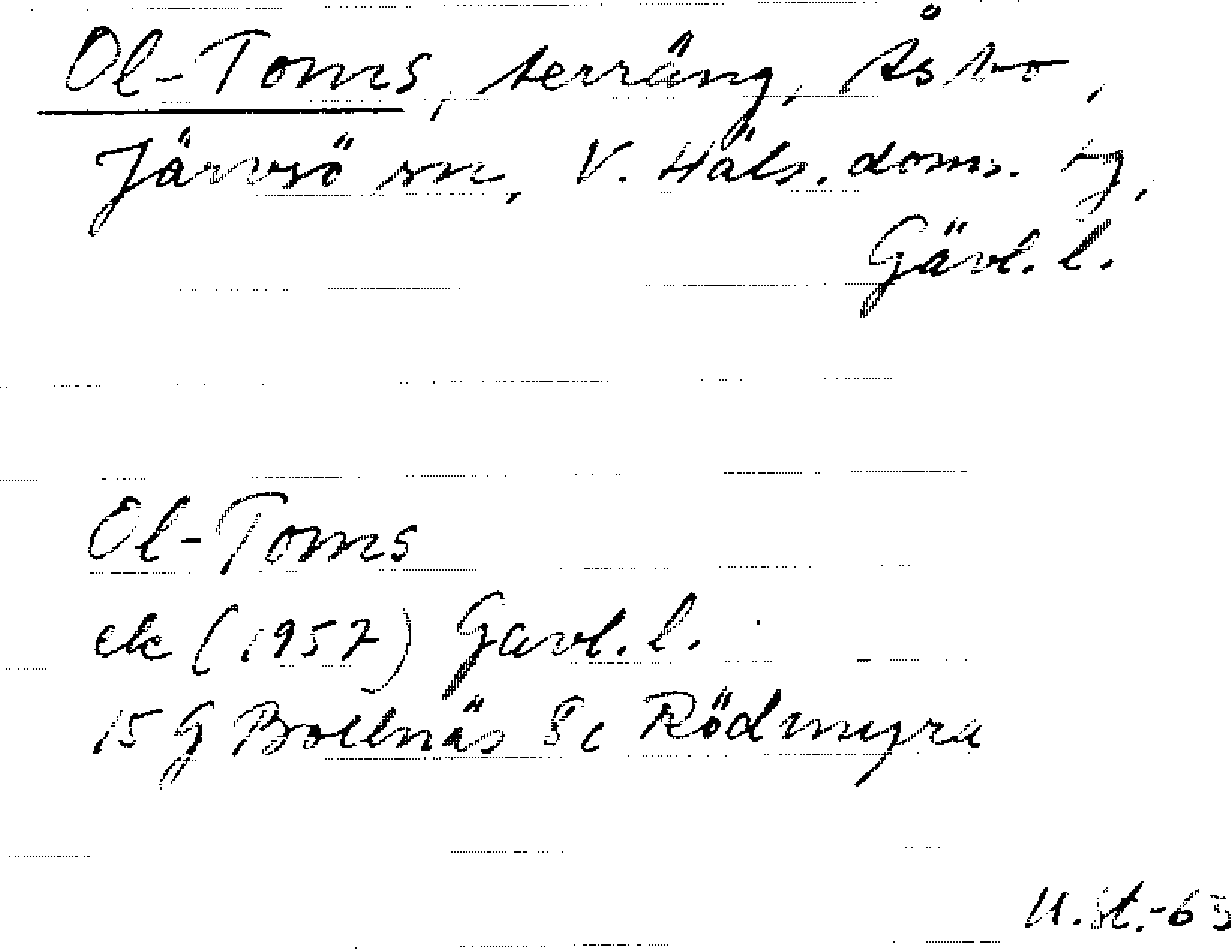 Ol-Toms, terräng, Åsbo,
Järvsö sn, V. Häls. doms. tg,
Gävl. l.
Ol-Toms
ek (1957) Gävl. l.
15 G Bollnäs 8c Rödmyra
U.St.-63